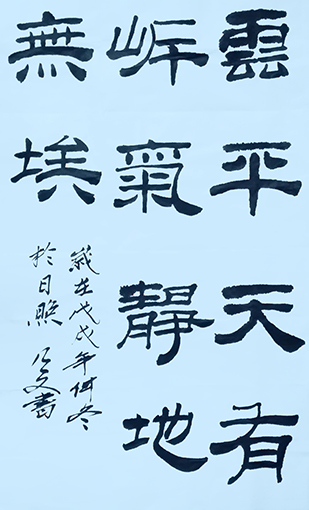 雲平天有
岸氣靜地
無埃
歲在戊戌年仲冬
於日照 書